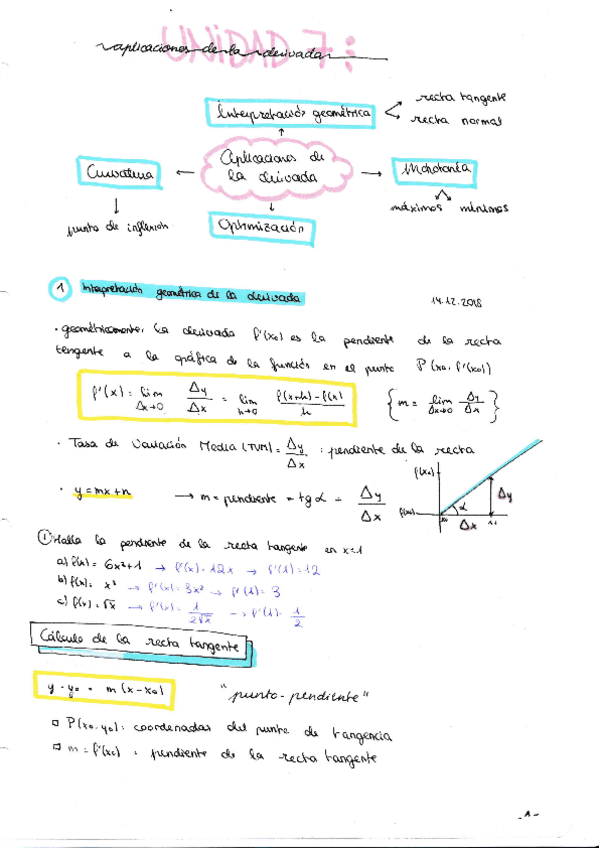 UNIDAD 7:
aplicaciones de la derivada
Interpretación geométrica
recta tangente
recta normal
Aplicaciones de
la derivada
Curvatura
Monotonía
punto de inflexión
Optimización
máximos mínimos
1 Interpretación geométrica de la derivada
14.12.2018
· geométricamente, la derivada f'(x₀) es la pendiente de la recta
tangente a la gráfica de la función en el punto P(x₀, f'(x₀))
f'(x) = lim Δx→0 Δy/Δx = lim h→0 f(x+h) - f(x)/h { m = lim Δx→0 Δy/Δx }
· Tasa de Variación Media (TVM) = Δy/Δx : pendiente de la recta
· y = mx + n → m = pendiente = tg α = Δy/Δx
f(x₀)
α
Δy
Δx
① Halla la pendiente de la recta tangente en x=1
a) f(x) = 6x²+1 → f'(x) = 12x → f'(1) = 12
b) f(x) = x³ → f'(x) = 3x² → f'(1) = 3
c) f(x) = √x → f'(x) = 1/2√x → f'(1) = 1/2
Cálculo de la recta tangente
y - y₀ = m (x - x₀) "punto-pendiente"
P(x₀, y₀) : coordenadas del punto de tangencia
m = f'(x₀) : pendiente de la recta tangente
-1-